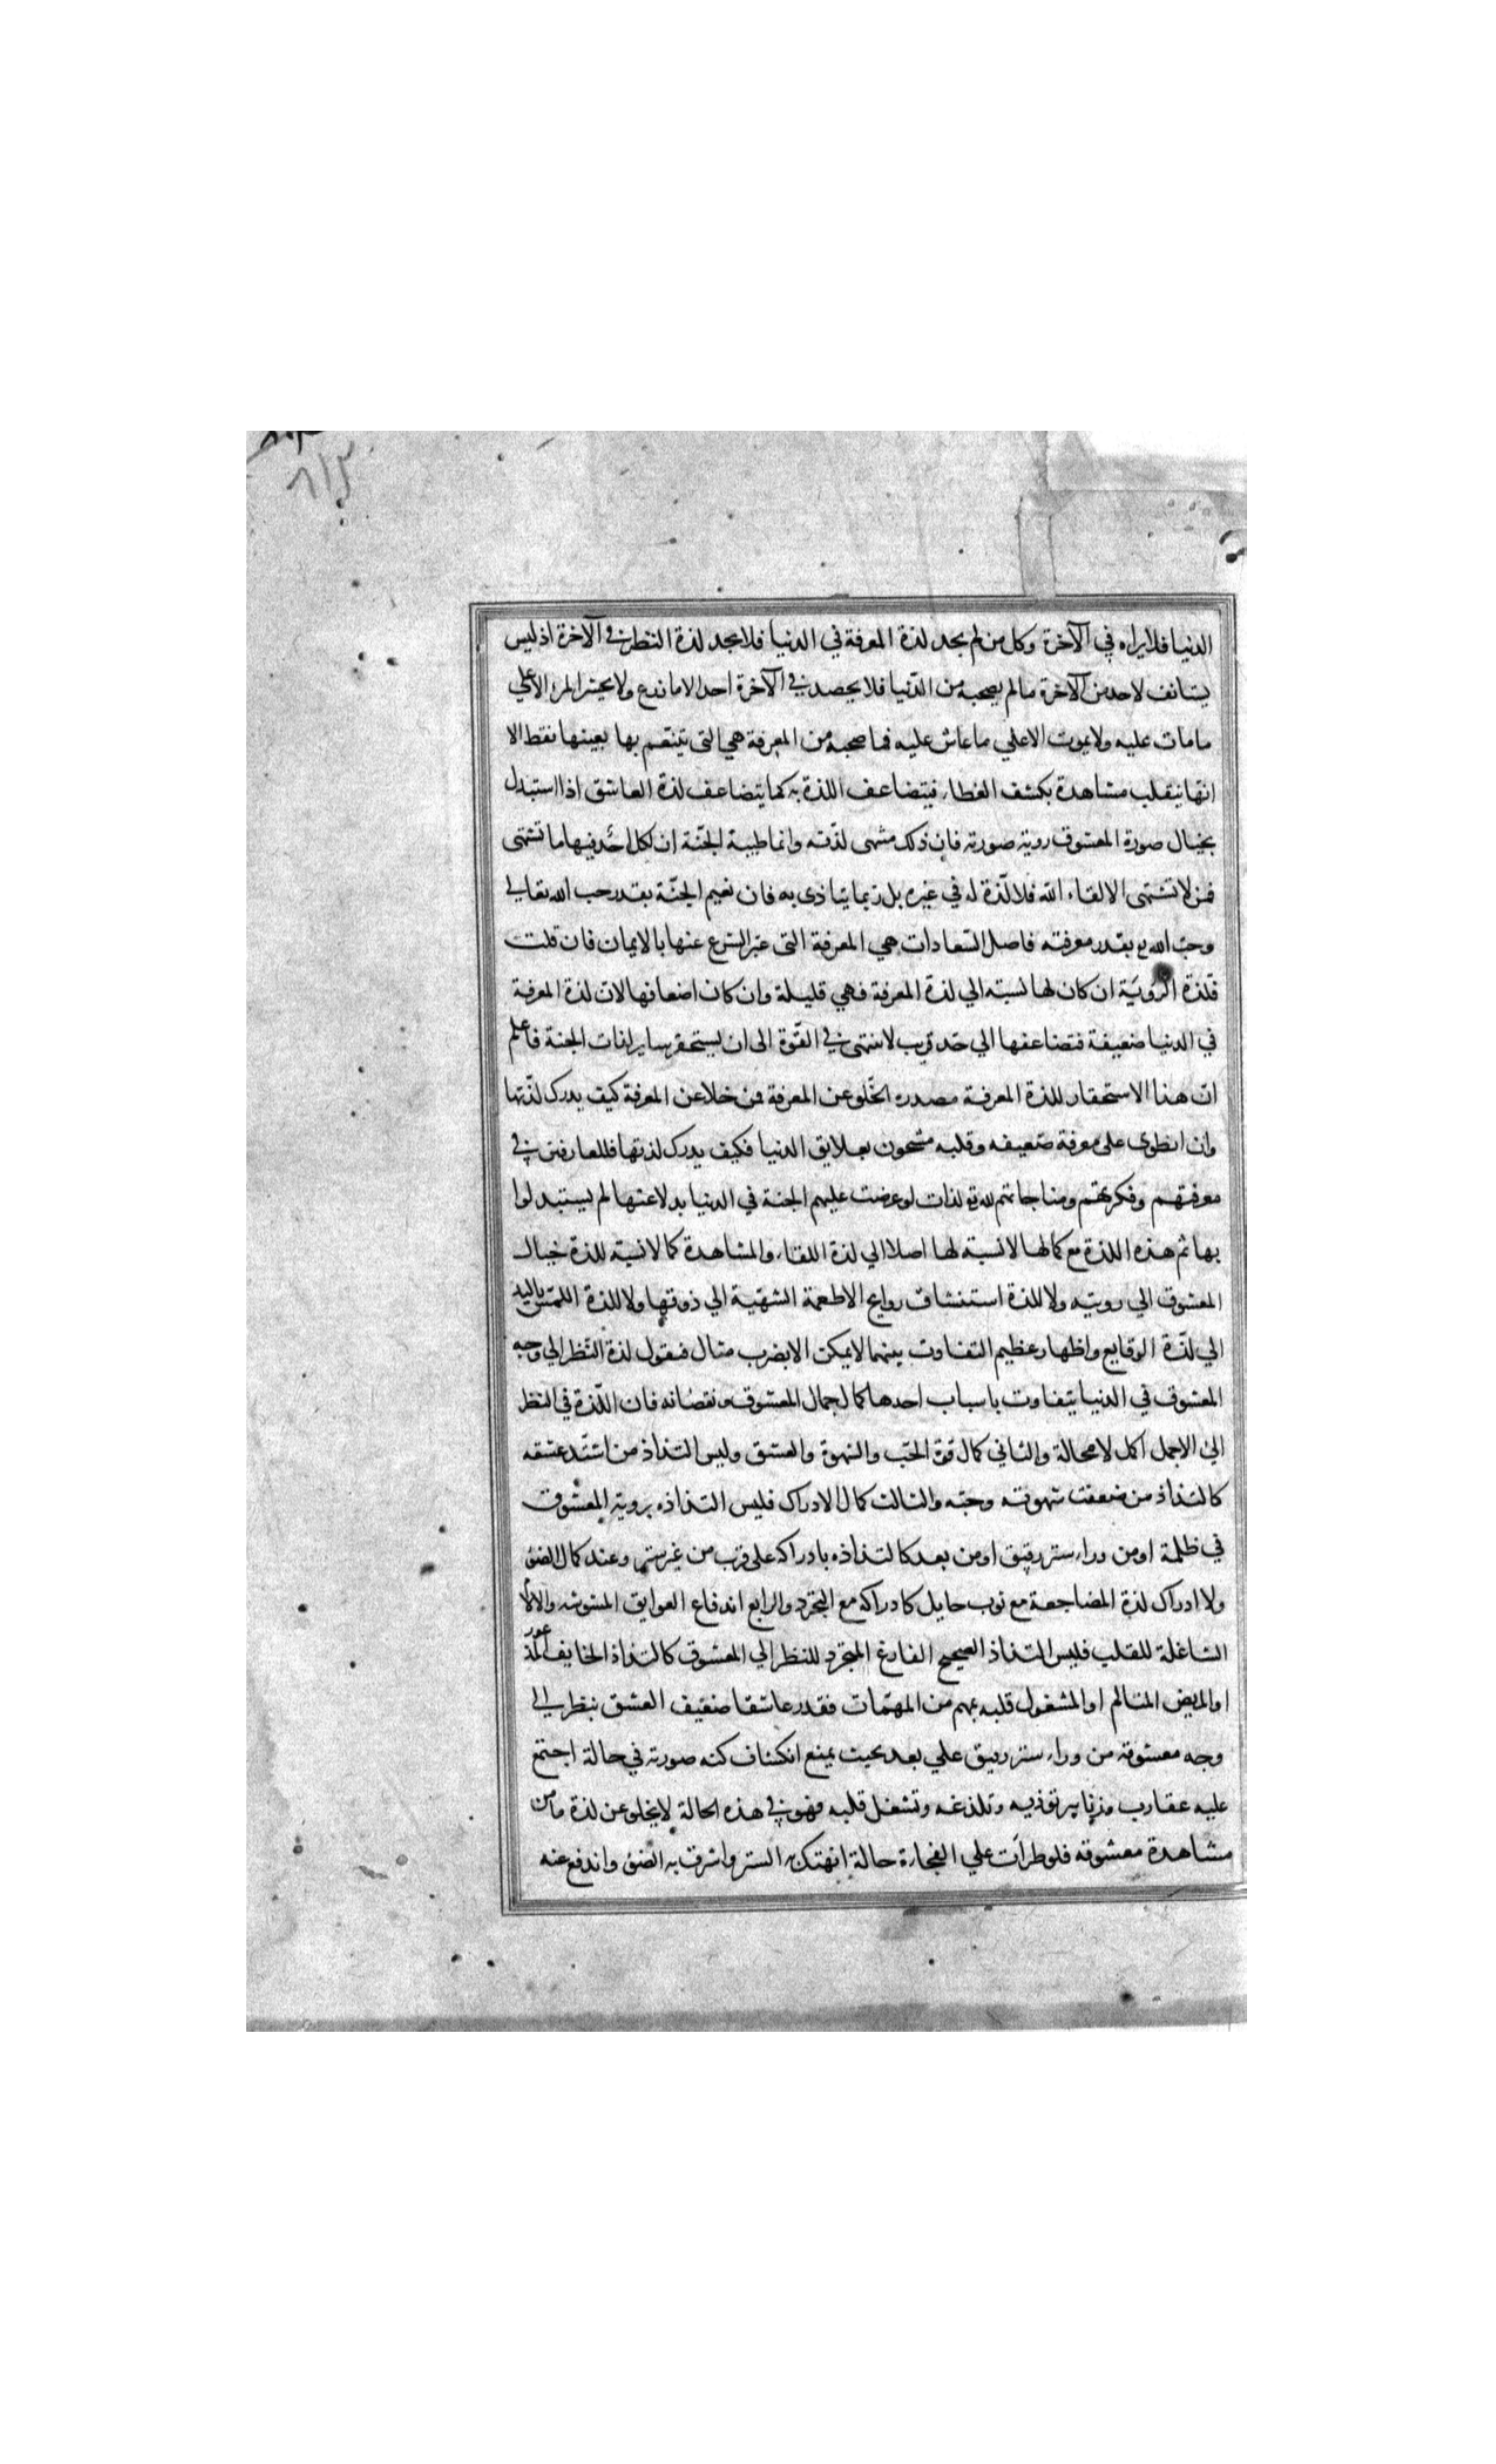 ٨١٣
الدنيا فلا يراه في الآخرة وكل من لم يجد لذة المعرفة في الدنيا فلا يجد لذة النظر في الآخرة اذ ليس
يستانف لاحد من الآخرة ما لم يصحبه من الدّنيا فلا يحصد في الآخرة احد الا ما زرع ولا يحشر المرء الا علي
ما مات عليه ولا يموت الا علي ما عاش عليه فما صحبه من المعرفة هي التى يتنعّم بها بعينها فقط الا
انّها ينقلب مشاهدة بكشف الغطاء فيتضاعف اللذة به كما يتضاعف لذة العاشق اذا استبدل
بخيال صورة المعشوق روية صورته فان ذلك منتهى لذّته وانما طيبة الجنّة ان لكل احد فيها ما تشتهى
فمن لا تشتهى الا لقاء الله فلا لّذة له في غيره بل ربما يتاذى به فان نعيم الجنّة بقدر حب الله تعالي
وحبّ الله تع بقدر معرفته فاصل السّعادات هي المعرفة التى عبّر الشرع عنها بالايمان فان قلت
فلذة الرويَة ان كان لها نسبته الي لذة المعرفة فهي قليلة وان كان اضعافها لان لذة المعرفة
في الدنيا ضعيفة فتضاعفها الي حّد قريب لا ينتهى في القّوة الى ان يستحقر ساير لذات الجنة فاعلم
ان هذا الاستحقار للذة المعرفة مصدره الخّلو عن المعرفة فمن خلا عن المعرفة كيف يدرك لذّتها
وان انطوى على معرفة ضعيفه وقلبه مشحون بعلايق الدنيا فكيف يدرك لذتها فللعارفين في
معرفتهم وفكرتهم ومناجاتهم لله تع لذات لو عرضت عليهم الجنة في الدنيا بدلا عنها لم يستبدلوا
بها ثم هذه اللذة مع كمالها لا نسبة لها اصلا الي لذة اللقاء والمشاهدة كما لا نسبة للذة خيال
المعشوق الي رويته ولا للذة استنشاق روايح الاطعمة الشهّية الي ذوقها ولا للذة اللمّس باليد
الي لذّة الوقايع واظهار عظيم التفاوت بينهما لا يمكن الا بضرب مثال فنقول لذة النّظر الي وجه
المعشوق في الدنيا يتفاوت باسباب احدها كمال جمال المعشوق ونقصانه فان اللّذة في النظر
الي الاجمل اكمل لا محالة والثاني كمال قوة الحّب والشهوة والعشق وليس التذاذ من اشتّد عشقه
كالتذاذ من ضعفت شهوته وحبّه والثالث كمال الادراك فليس التذاذه بروية المعشوق
في ظلمة او من وراء ستر رقيق او من بعد كالتذاذه بادراكه على قرب من غير ستر وعند كمال الضوء
ولا ادراك لذة المضاجعة مع ثوب حايل كادراكه مع التجرّد والرابع اندفاع العوايق المشوشه والآلام
الشاغلة للقلب فليس التذاذ الصحيح الفارغ المتجرّد للنظر الي المعشوق كالتذاذ الخايف المذعور
او المريض المتالم او المشغول قلبه بمهم من المهمّات فقدر عاشقا ضعّيف العشق ينظر الي
وجه معشوقه من وراء ستر رقيق علي بعد بحيث يمنع انكشاف كنه صورته في حالة اجتمع
عليه عقارب وزنابير توذيه وتلذغه وتشغل قلبه فهو في هذه الحالة لا يخلو عن لذة ما من
مشاهدة معشوقه فلو طرأت علي الفجاءة حالة انهتك به الستر واشرق به الضوء واندفع عنه